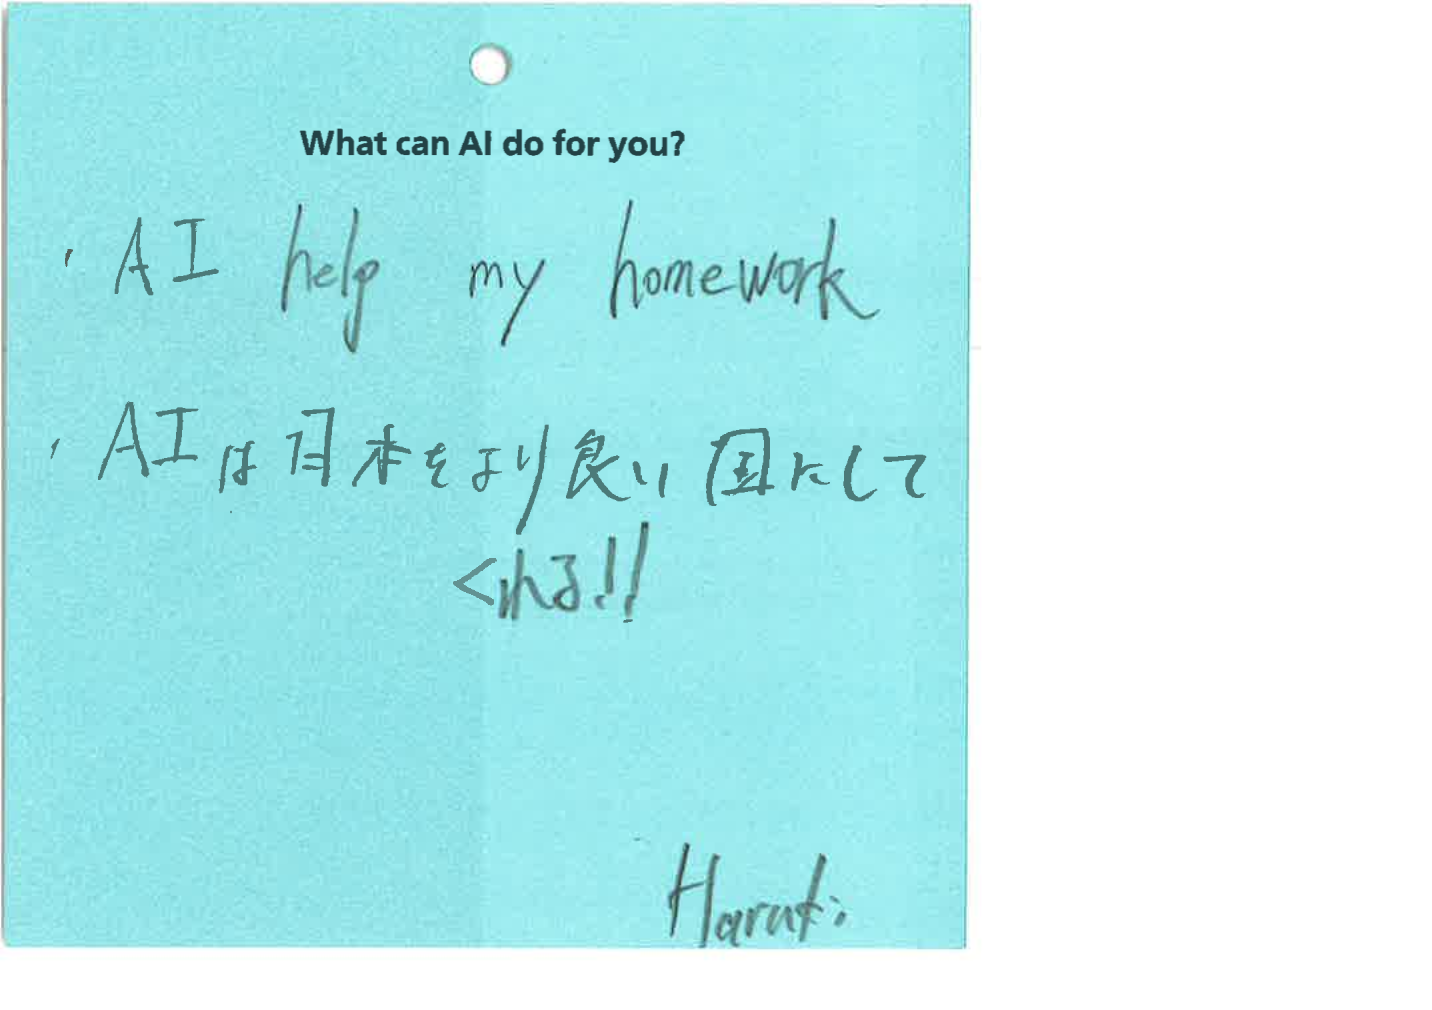 What can AI do for you?
・AI help my homework
・AIは日本をより良い国にして
くれる!!
Haruki